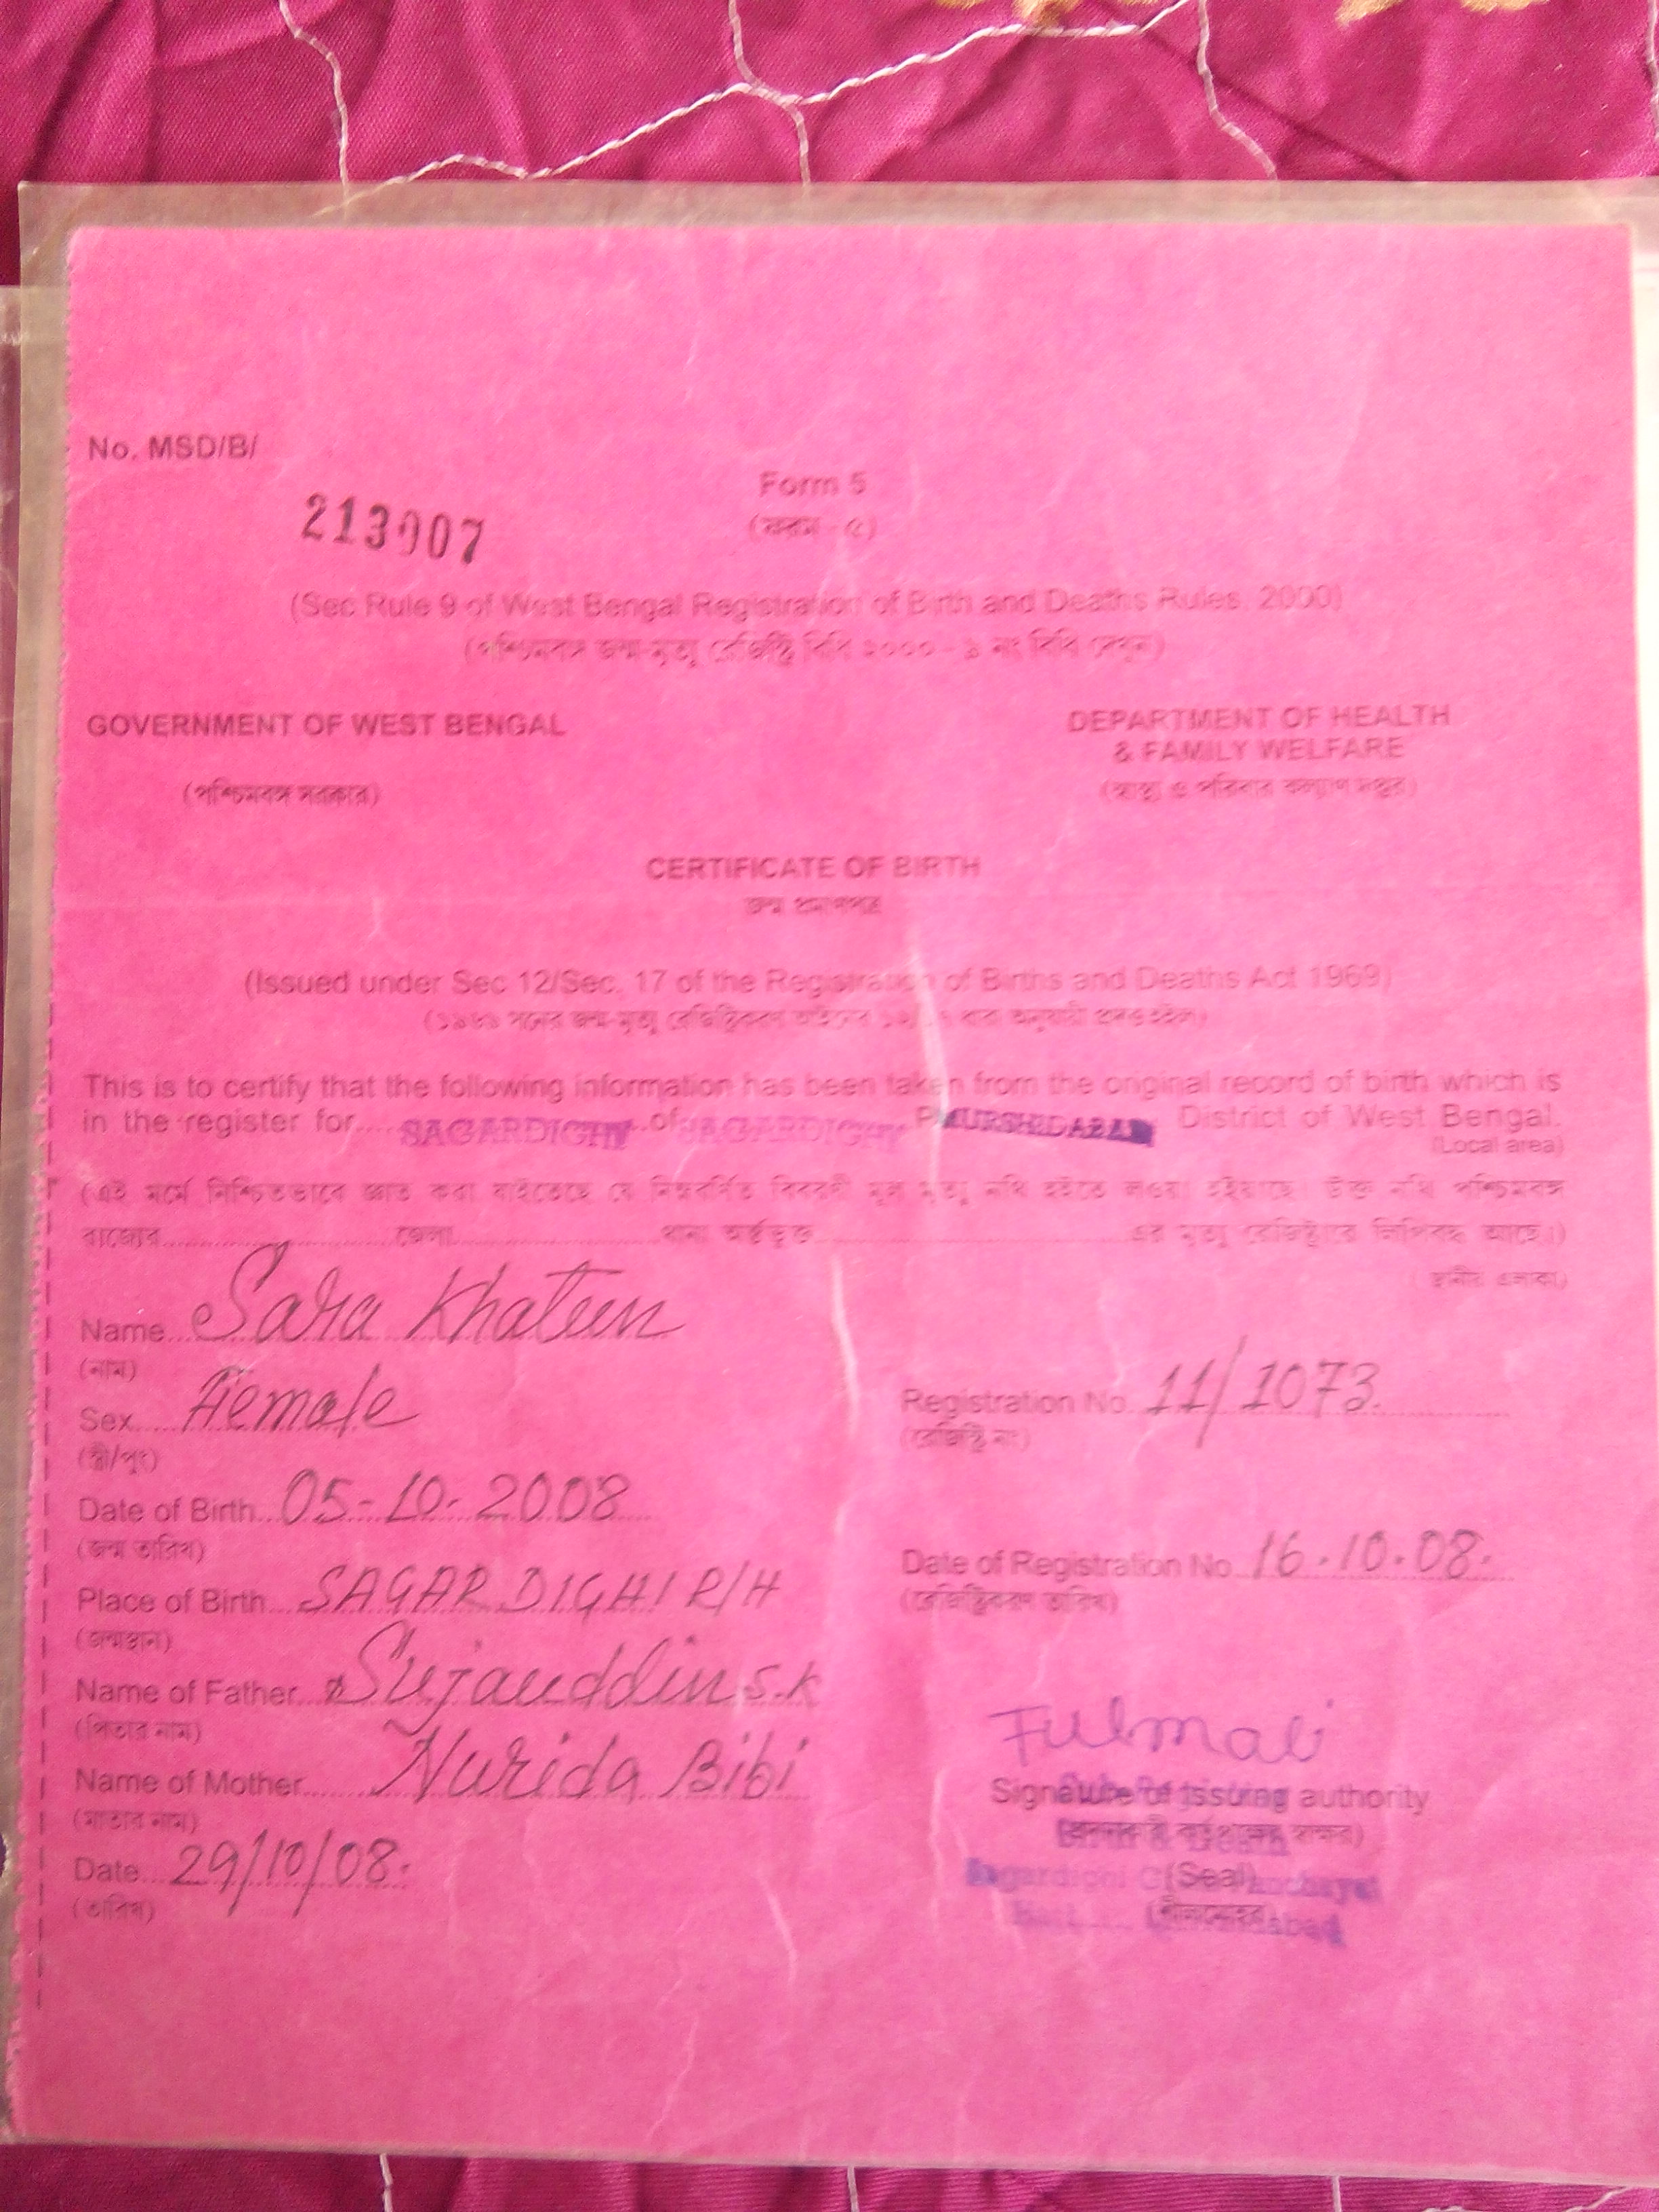 No. MSD/B/
213007
Form 5
(ফরম - ৫)
(Sec Rule 9 of West Bengal Registration of Birth and Deaths Rules, 2000)
(পশ্চিমবঙ্গ জন্ম-মৃত্যু রেজিস্ট্রি বিধি ২০০০ - ৯ নং বিধি দেখুন)
GOVERNMENT OF WEST BENGAL
(পশ্চিমবঙ্গ সরকার)
DEPARTMENT OF HEALTH
& FAMILY WELFARE
(স্বাস্থ্য ও পরিবার কল্যাণ দপ্তর)
CERTIFICATE OF BIRTH
জন্ম প্রমাণপত্র
(Issued under Sec 12/Sec. 17 of the Registration of Births and Deaths Act 1969)
(১৯৬৯ সনের জন্ম-মৃত্যু রেজিস্ট্রিকরণ আইনের ১২/১৭ ধারা অনুযায়ী প্রদত্ত হইল)
This is to certify that the following information has been taken from the original record of birth which is
in the register for....SAGARDIGHI..of SAGARDIGHI P MURSHIDABAD District of West Bengal.
(Local area)
(এই মর্মে নিশ্চিতভাবে জ্ঞাত করা যাইতেছে যে নিম্নবর্ণিত বিবরণী মূল মৃত্যু নথি হইতে লওয়া হইয়াছে। উক্ত নথি পশ্চিমবঙ্গ
রাজ্যের..........জেলা..........থানা অর্ন্তভূক্ত..........এর মৃত্যু রেজিস্ট্রারে লিপিবদ্ধ আছে।)
স্থানীয় এলাকা)
Name...Sara Khatun
(নাম)
Sex....Female
(স্ত্রী/পুং)
Registration No. 11/1073.
(রেজিস্ট্রি নং)
Date of Birth...05-10-2008
(জন্ম তারিখ)
Date of Registration No...16.10.08.
(রেজিস্ট্রিকরণ তারিখ)
Place of Birth...SAGARDIGHI R/H
(জন্মস্থান)
Name of Father...Sujauddin S.K
(পিতার নাম)
Name of Mother...Nurida Bibi
(মাতার নাম)
Date...29/10/08.
(তারিখ)
Fulmali
Signature of issuing authority
Birth & Death
(Seal)
Sagardighi G Panchayet
(সীলমোহর)